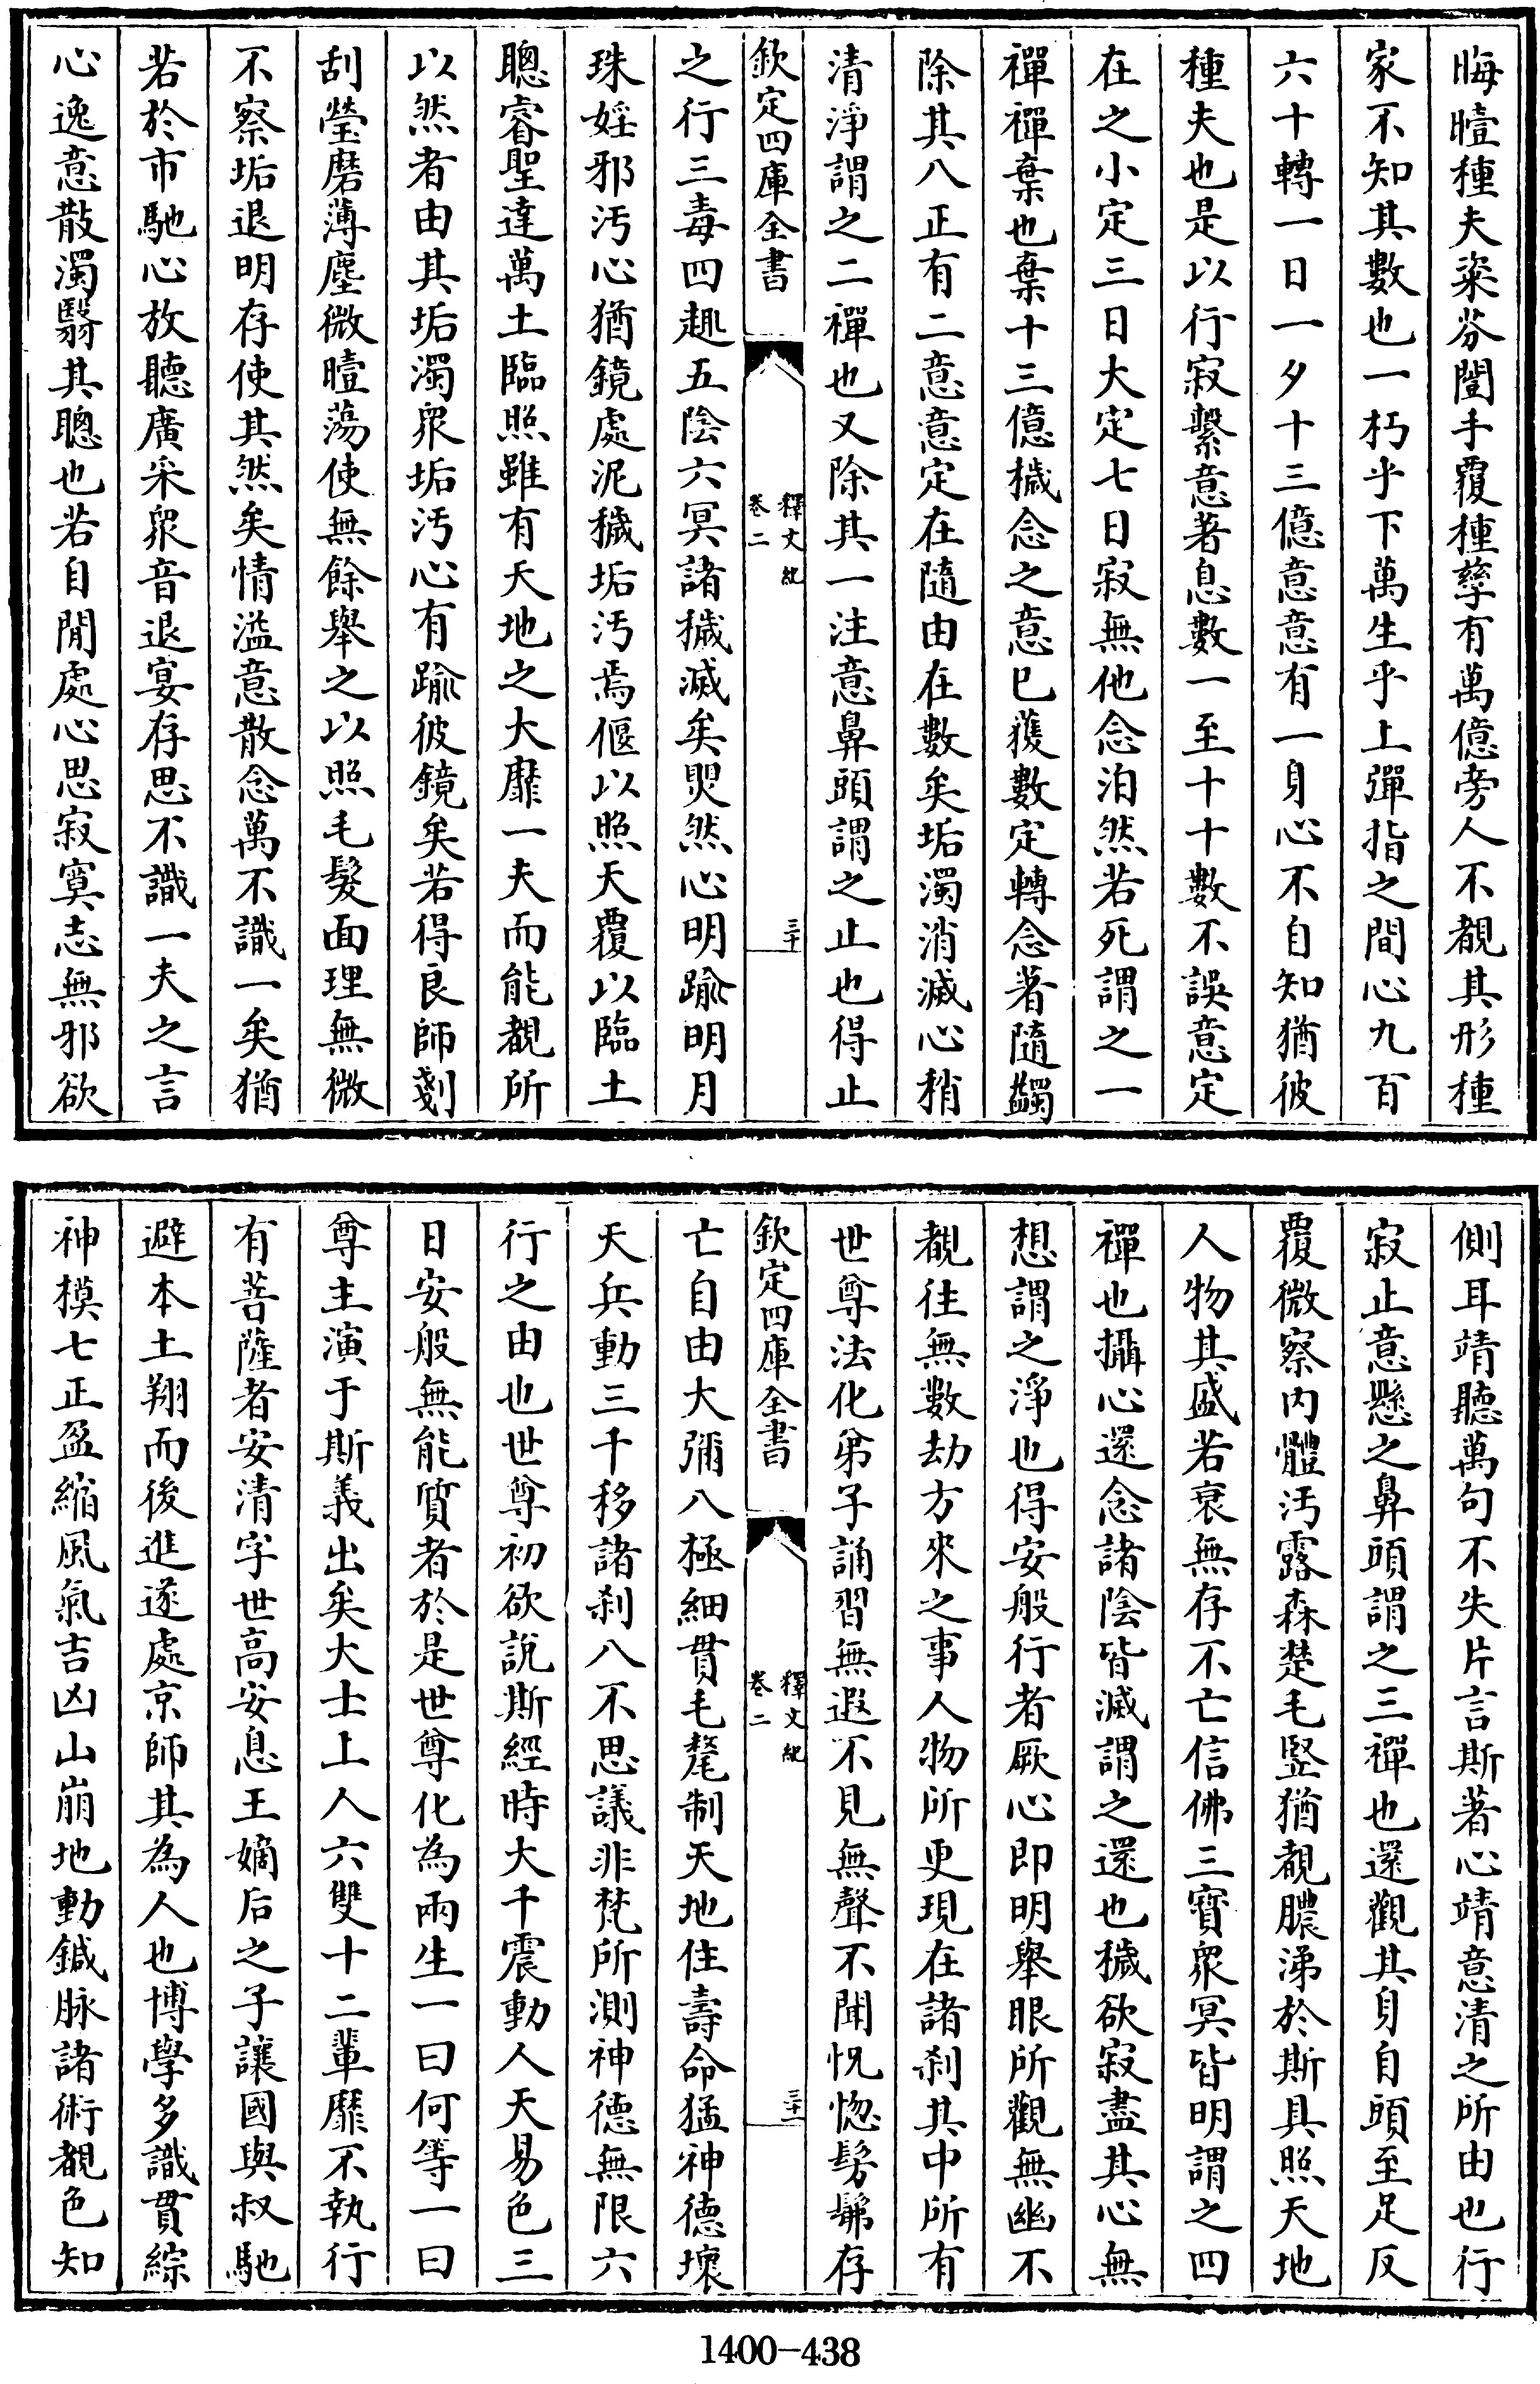 晦曀種夫粢芬闓手覆種孳有萬億旁人不覩其形種
家不知其數也一朽乎下萬生乎上彈指之間心九百
六十轉一日一夕十三億意意有一身心不自知猶彼
種夫也是以行寂繫意著息數一至十十數不誤意定
在之小定三日大定七日寂無他念泊然若死謂之一
禪禪棄也棄十三億穢念之意已獲數定轉念著隨蠲
除其八正有二意意定在隨由在數矣垢濁消滅心稍
清淨謂之二禪也又除其一注意鼻頭謂之止也得止
欽定四庫全書
釋文紀
卷二
三十
之行三毒四趣五陰六冥諸穢滅矣煚然心明踰明月
珠婬邪汚心猶鏡處泥穢垢汚焉偃以照天覆以臨土
聰睿聖達萬土臨照雖有天地之大靡一夫而能覩所
以然者由其垢濁衆垢汚心有踰彼鏡矣若得良師剗
刮瑩磨薄塵微曀蕩使無餘舉之以照毛髮面理無微
不察垢退明存使其然矣情溢意散念萬不識一矣猶
若於市馳心放聽廣采衆音退宴存思不識一夫之言
心逸意散濁翳其聰也若自閒處心思寂寞志無邪欲
側耳靖聽萬句不失片言斯著心靖意清之所由也行
寂止意懸之鼻頭謂之三禪也還觀其身自頭至足反
覆微察内體汚露森楚毛竪猶覩膿涕於斯具照天地
人物其盛若衰無存不亡信佛三寳衆冥皆明謂之四
禪也攝心還念諸陰皆滅謂之還也穢欲寂盡其心無
想謂之淨也得安般行者厥心即明舉眼所觀無幽不
覩往無數劫方來之事人物所更現在諸刹其中所有
世尊法化弟子誦習無遐不見無聲不聞怳惚髣髴存
欽定四庫全書
釋文紀
卷二
三十一
亡自由大彌八極細貫毛氂制天地住壽命猛神德壞
天兵動三千移諸刹八不思議非梵所測神德無限六
行之由也世尊初欲說斯經時大千震動人天易色三
日安般無能質者於是世尊化為兩生一曰何等一曰
尊主演于斯義出矣大士上人六雙十二輩靡不執行
有菩薩者安清字世高安息王嫡后之子讓國與叔馳
避本土翔而後進遂處京師其為人也博學多識貫綜
神模七正盈縮風氣吉凶山崩地動鍼脉諸術覩色知
1400-438